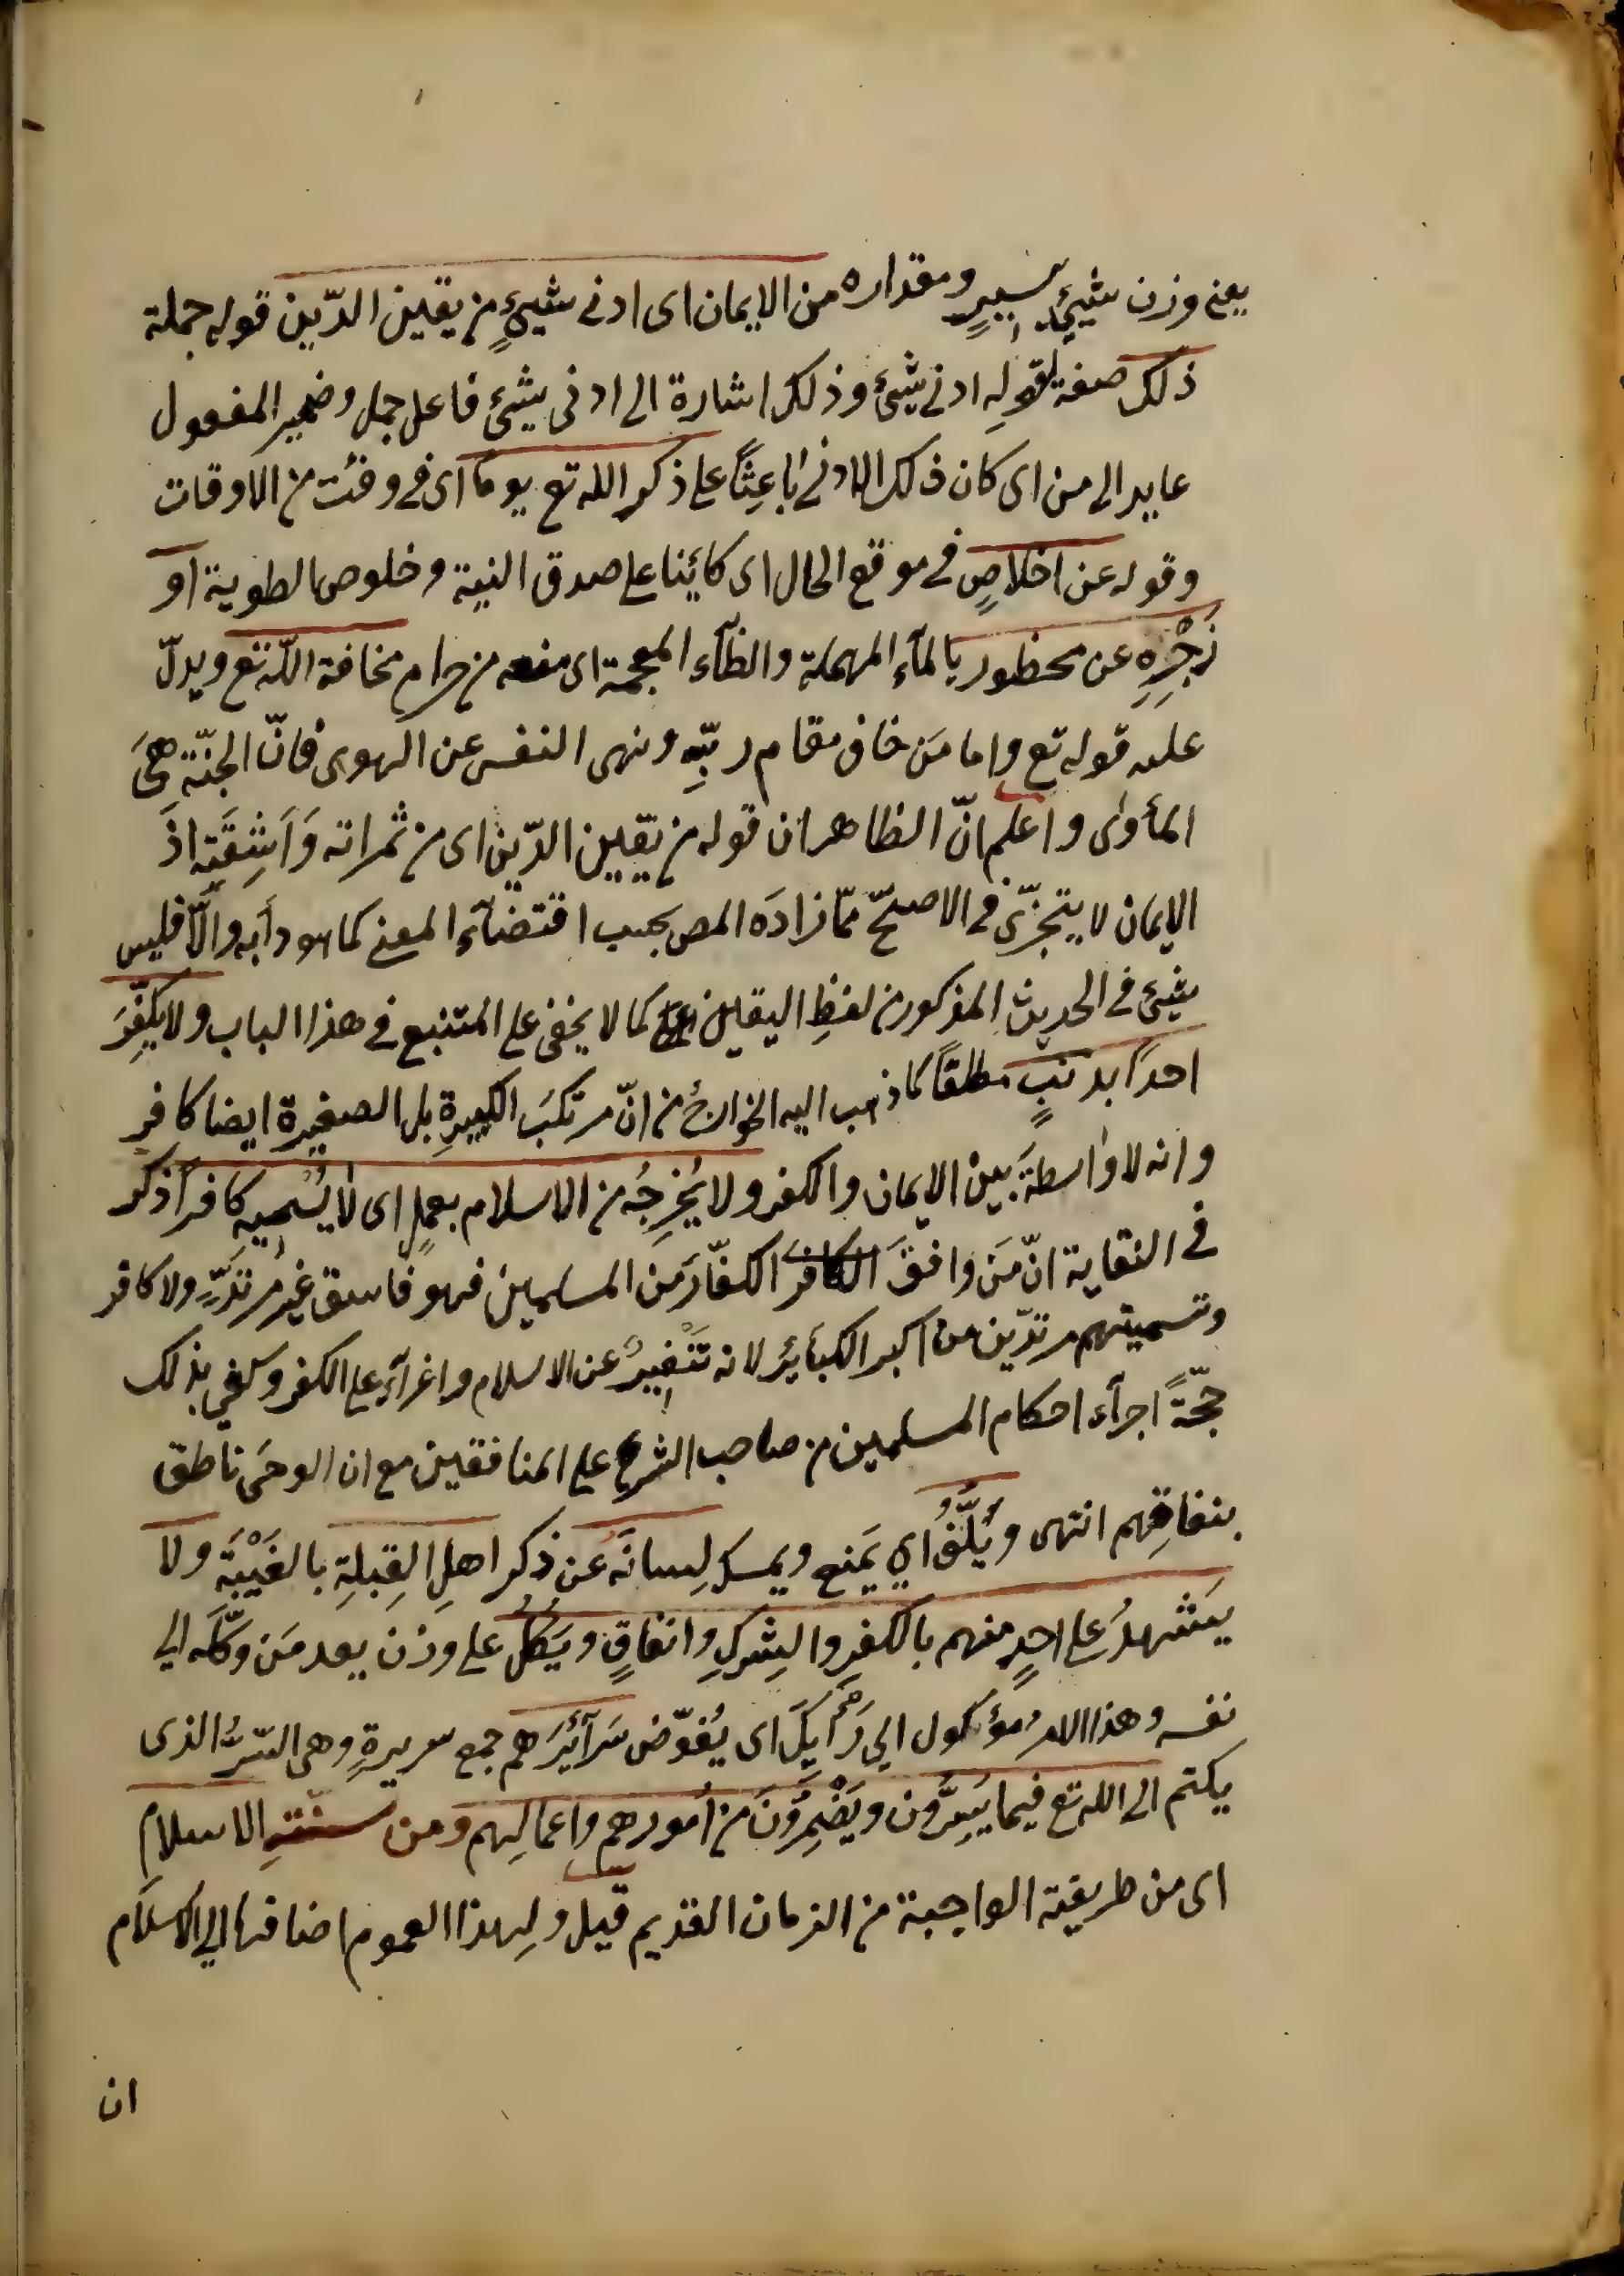 يعنى وزن شيئ يسيرٍ ومقداره من الايمان اى ادنى شيئٍ من يقين الدّين قوله حمله
ذلك صفة لقولِه ادنى شيئ وذلك اشارة الى ادنى شيئ فاعل حمل وضمير المفعول
عايد الى من اى كان ذلك الادنى باعِثًا على ذكر الله تع يوما اى فى وقت من الاوقات
وقوله عن اخلاصٍ فى موقع الحال اى كائنا على صدق النية وخلوص الطوية او
زَجْرِهِ عن محظور بالحآء المهملة والظآء المعجمة اى منعه من حرام مخافة اللّه تع ويدلّ
عليه قوله تع واما مَن خاف مقام ربّهِ ونهى النفس عن الهوى فانّ الجنّة هىَ
المأوى واعلم انّ الظاهر ان قوله من يقين الدّين اى من ثمراته وَاَشِعَّتِه اذَ
الايمان لا يتجزّى فى الاصحّ ممّا زادَه المص بحسب اقتضآءِ المعنى كما هو دأبه والّا فليس
شيئ فى الحديث المذكور من لفظِ اليقين كما لا يخفى على المتتبع فى هذا الباب ولا يكفّرَ
احدًا بذنبٍ مطلقًا كما ذهب اليه الخوارجُ من انّ مرتكبَ الكبيرةِ بل الصغيرة ايضا كافر
وانه لا واسطةَ بين الايمان والكفر ولا يُخرِجُه من الاسلام بعملٍ اى لا يُسَمّيه كافرًا ذكر
فى النقاية انّ مَن وافقَ الكافرَ الكفّارَ من المسلمين فهو فاسق غيرُ مرتدٍّ ولا كافر
وتسميتهم مرتدّين من اكبر الكبآئر لانه تَنْفِيرٌ عن الاسلام واغرآء على الكفر وكفى بذلك
حجّةً اجرآء احكام المسلمين من صاحب الشرع على المنافقين مع ان الوحىَ ناطق
بنفاقِهم انتهى ويُكَفُّ اي يَمنع ويمسك لِسانَه عن ذكر اهلِ القِبلةِ بالغَيْبَة ولا
يَشهدُ على احدٍ منهم بالكفرِ والشِركِ وانفاقٍ ويَكِلُ على وزن يعد مَن وكّله الى
نفسه وهذا الامرُ مؤكول الى رَأْيِكَ اى يُفوّض سَرآئِرَهم جمع سريرةٍ وهى السّرُّ الذى
يكتم الى الله تع فيما يُسِرُّون ويُضْمِرُونَ من اُمورهم واعمالِهم ومن سنّتهِ الاسلامِ
اى من طريقته الواجبة من الزمان القديم قيل ولهذا العموم اضافها الى الاسلام
ان